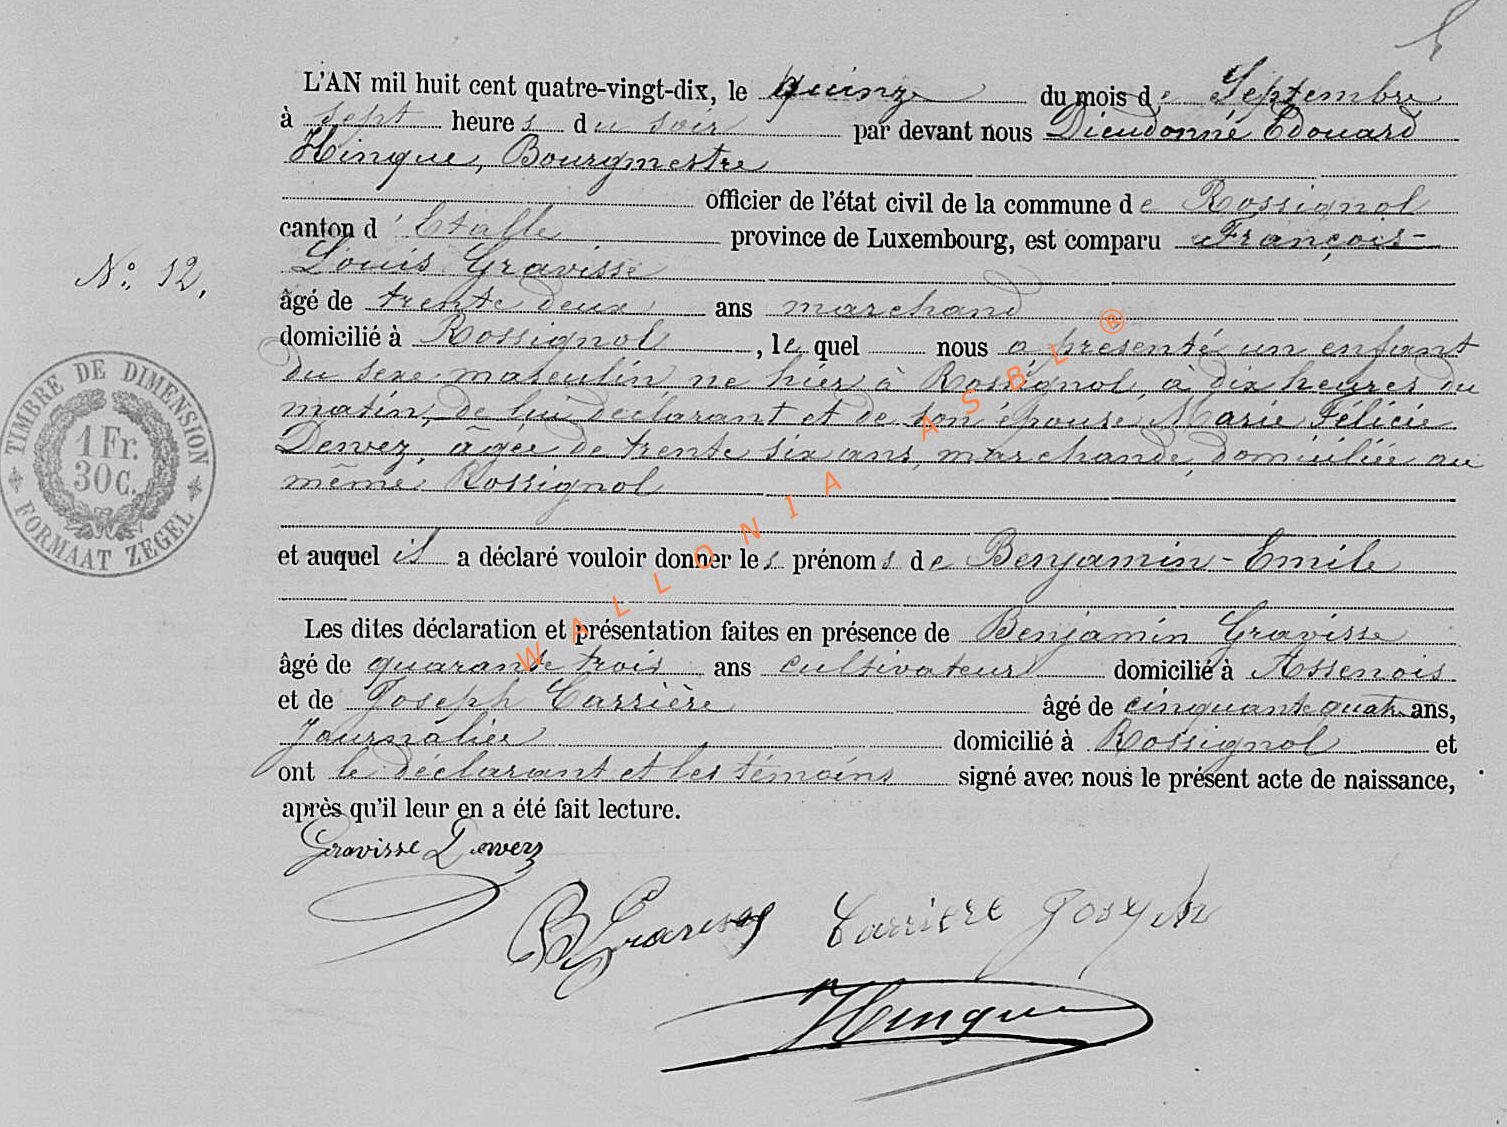 L'AN mil huit cent quatre-vingt-dix, le quinze du mois de Septembre
à sept heures du soir par devant nous Dieudonné Edouard
Hinque, Bourgmestre
officier de l'état civil de la commune de Rossignol
canton d'Etalle province de Luxembourg, est comparu François-
Louis Gravisse
N° 12.
âgé de trente deux ans marchand
domicilié à Rossignol, le quel nous a présenté un enfant
du sexe masculin né hier à Rossignol, à dix heures du
matin, de lui déclarant et de son épouse Marie Félicie
Dewez, âgée de trente six ans, marchande, domiciliée au
même Rossignol
TIMBRE DE DIMENSION
1 Fr.
30 C.
FORMAAT ZEGEL
et auquel il a déclaré vouloir donner les prénoms de Benjamin-Emile
Les dites déclaration et présentation faites en présence de Benjamin Gravisse
âgé de quarante trois ans cultivateur domicilié à Assenois
et de Joseph Carrière âgé de cinquante quatre ans,
Journalier domicilié à Rossignol et
ont le déclarant et les témoins signé avec nous le présent acte de naissance,
après qu'il leur en a été fait lecture.
Gravisse Dewez
B Gravisse Carriere Joseph
Hinque
WALLONIA ASBL ®